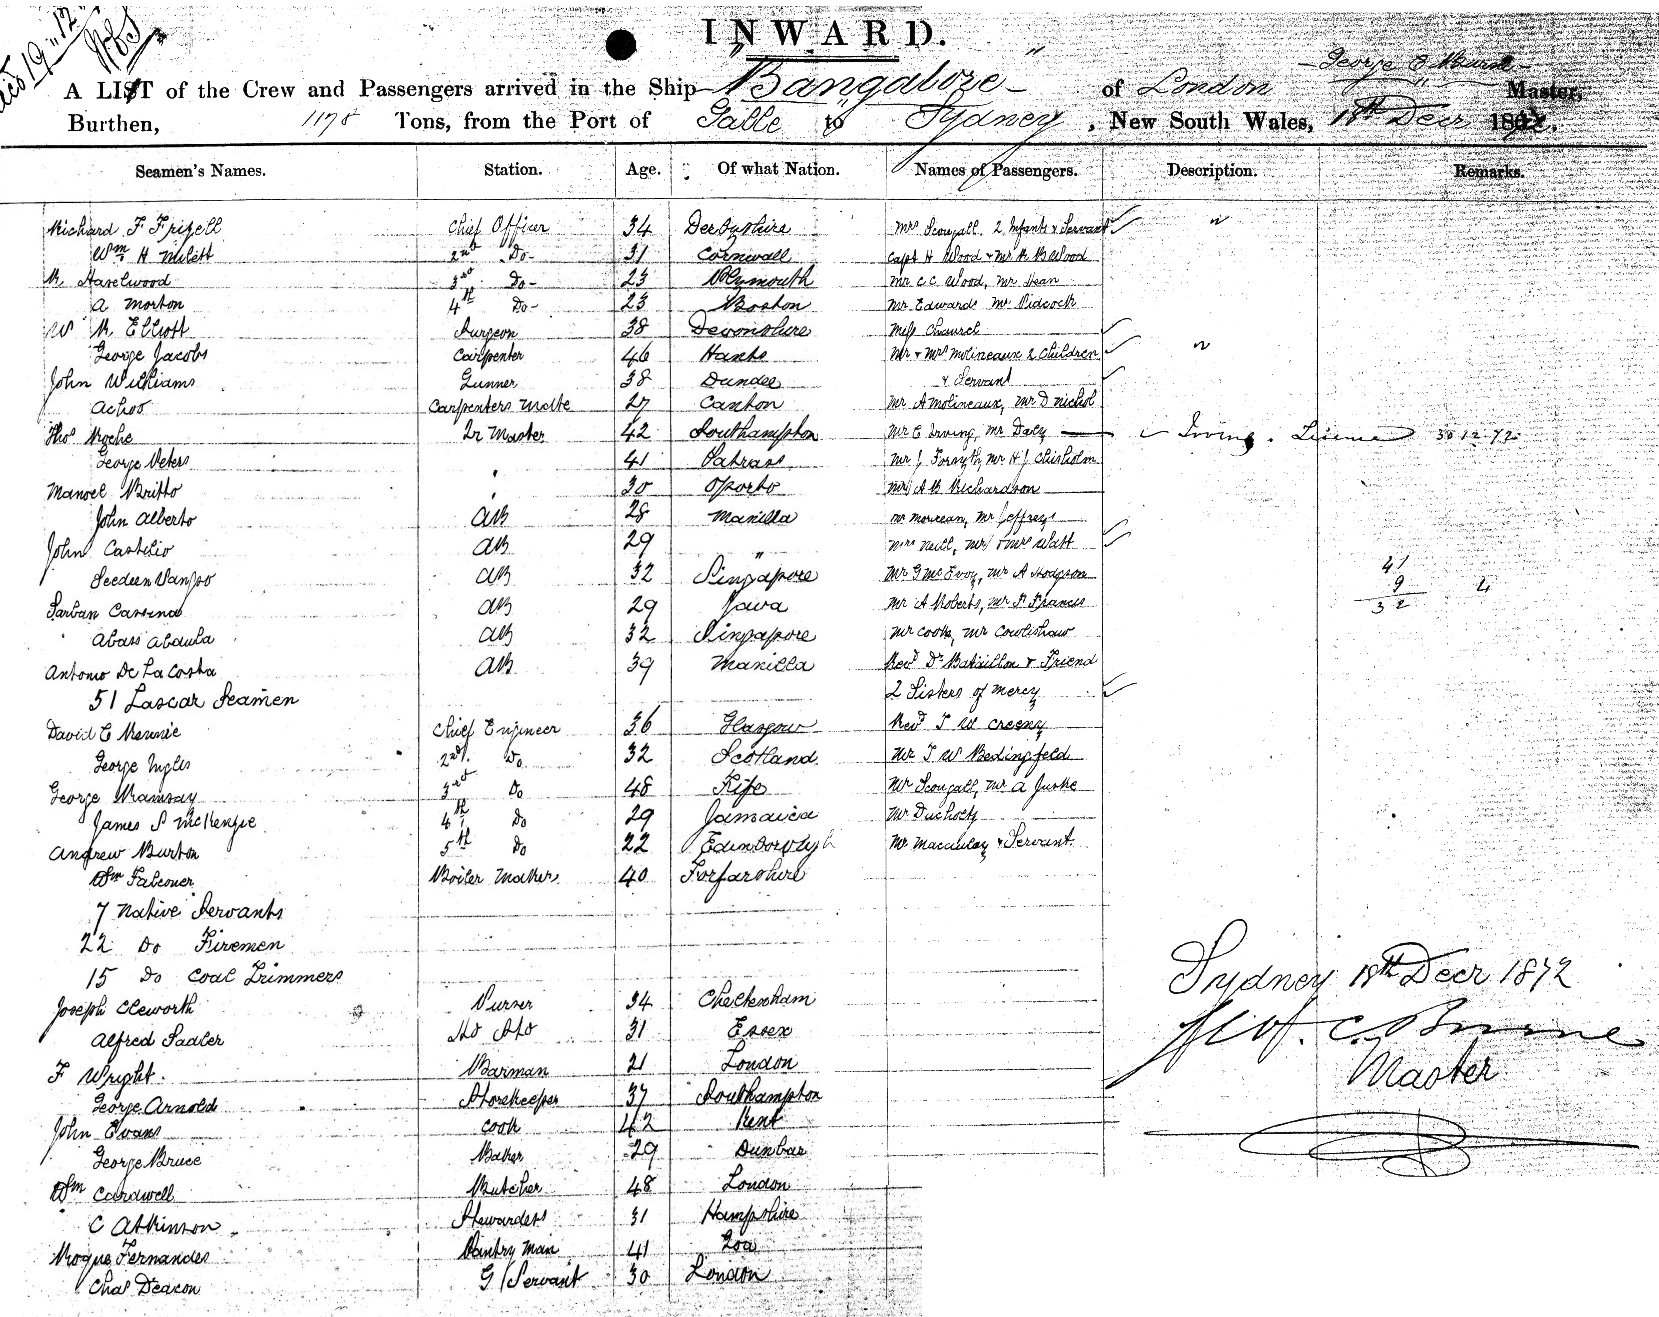 INWARD.
A LIST of the Crew and Passengers arrived in the Ship "Bangalore" of London George C Burne Master,
Burthen, 1178 Tons, from the Port of Galle to Sydney, New South Wales, 18th Decr 1872.
Seamen's Names. Station. Age. Of what Nation. Names of Passengers. Description. Remarks.
Richard F Frizell Chief Officer 34 Derbyshire Mrs Scougall. 2 Infants & Servant
Wm H Milett 2nd Do 31 Cornwall Capt H Wood & Mr R B Wood
R Haselwood 3rd Do 23 Plymouth Mr C C Wood, Mr Dean
A Morton 4th Do 23 Boston Mr Edwards Mr Pidcock
W R Elliott Surgeon 38 Devonshire Miss Church
George Jacobs Carpenter 46 Hants Mr & Mrs Molineaux 2 Children
John Williams Gunner 38 Dundee & Servant
Achoo Carpenters Mate 27 Canton Mr A Molineaux, Mr D Nichol
Thos Roche Qr Master 42 Southampton Mr E Irving, Mr Daly Irving. License 30.12.72
George Peters " 41 Patras Mr J Forsyth, Mr H J Chisholm
Manoel Britto " 30 Oporto Mr A B Richardson
John Alberto AB 28 Manilla Mr Moureau, Mr Jeffreys
John Castilio AB 29 " Mrs Neill, Mr & Mrs Watt
AB 32 Singapore Mr G McEvoy, Mr A Hodgson 41
Sarban AB 29 Java Mr A Roberts, Mr F Francis 9 4
Abass Abdula AB 32 Singapore Mr Cook, Mr Cowlishaw 32
Antonio De La Costa AB 39 Manilla Revd Dr Bataillon & Friend
51 Lascar Seamen 2 Sisters of Mercy
David C Rennie Chief Engineer 36 Glasgow Revd T W Creeny
George Ingles 2nd. Do 32 Scotland Mr T W Bedingfeld
George Ramsay 3rd Do 48 Fife Mr Scougall, Mr A Juske
James S McKenzie 4th Do 29 Jamaica Mr Ducholz
Andrew Burton 5th Do 22 Edinborough Mr Macaulay & Servant.
Wm Falconer Boiler Maker 40 Forfarshire
7 Native Servants
22 Do Firemen
15 Do Coal Trimmers
Joseph Cleworth Purser 34 Cheltenham
Alfred Sadler Do Do 31 Essex
F Wright. Barman 21 London
George Arnold Storekeeper 37 Southampton
John Evans Cook 42 Kent
George Bruce Baker 29 Dunbar
Wm Cardwell Butcher 48 London
C Atkinson Stewardess 31 Hampshire
Roque Fernandes Pantry Man 41 Goa
Chas Deacon G/Servant 30 London
Sydney 18th Decr 1872
Geo. C. Burne
Master